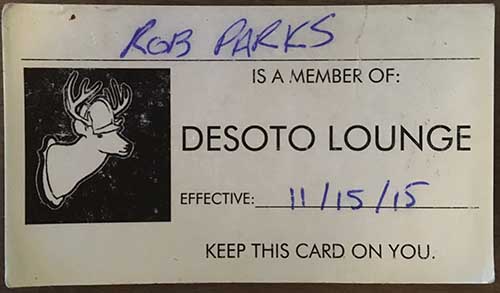 ROB PARKS
IS A MEMBER OF:
DESOTO LOUNGE
EFFECTIVE: 11/15/15
KEEP THIS CARD ON YOU.